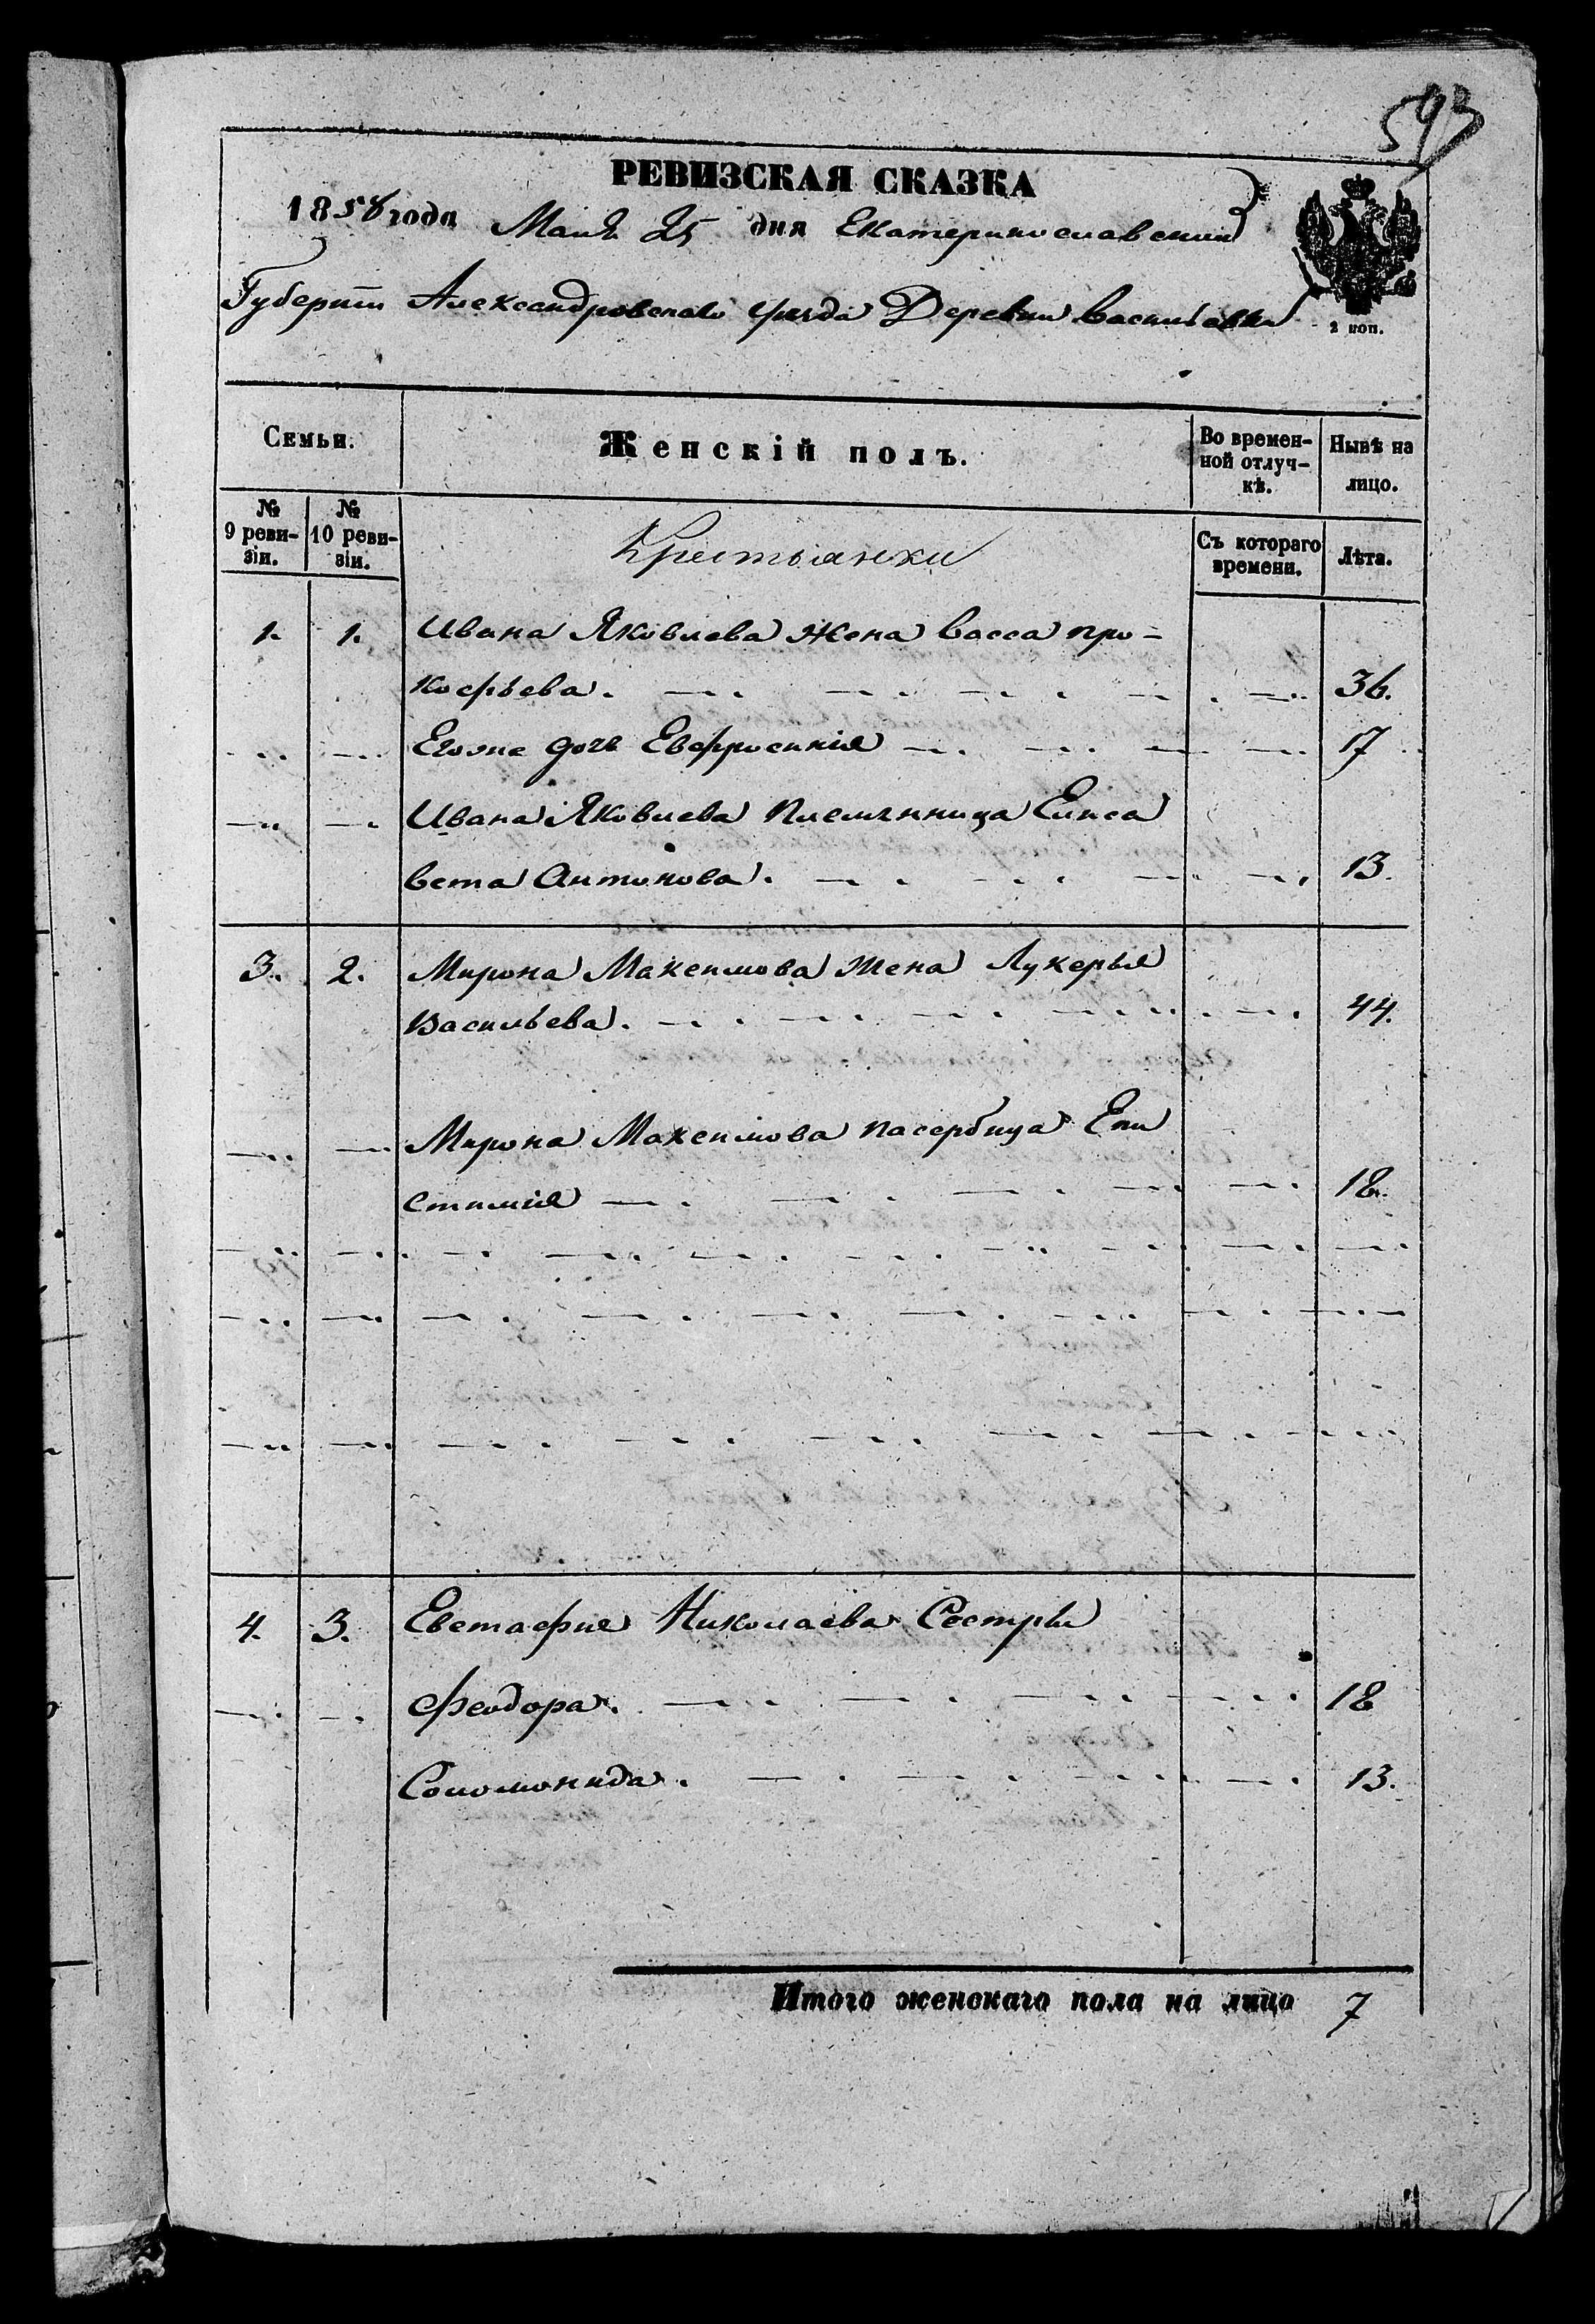 593
РЕВИЗСКАЯ СКАЗКА
1858 года Мая 25 дня Екатеринославской
Губернiи Александровскаго уѣзда Деревни Васильевки
2 коп.
Семьи. Женскій полъ. Во времен- Нынѣ на
ной отлуч- лицо.
кѣ.
№ №
9 реви- 10 реви- Крестьянки Съ котораго Лѣта.
зіи. зіи. времени.
1. 1. Ивана Яковлева жена Васса Про-
кофьева. 36.
Его же дочь Евфросинія 17
Ивана Яковлева племянница Елиса
вета Антонова. 13.
3. 2. Мирона Максимова жена Лукерья
Васильева. 44.
Мирона Максимова пасербица Епи
стимія 18.
4. 3. Евстафия Николаева Сестры
Феодора. 18
Соломонида. 13.
Итого женскаго пола на лицо 7